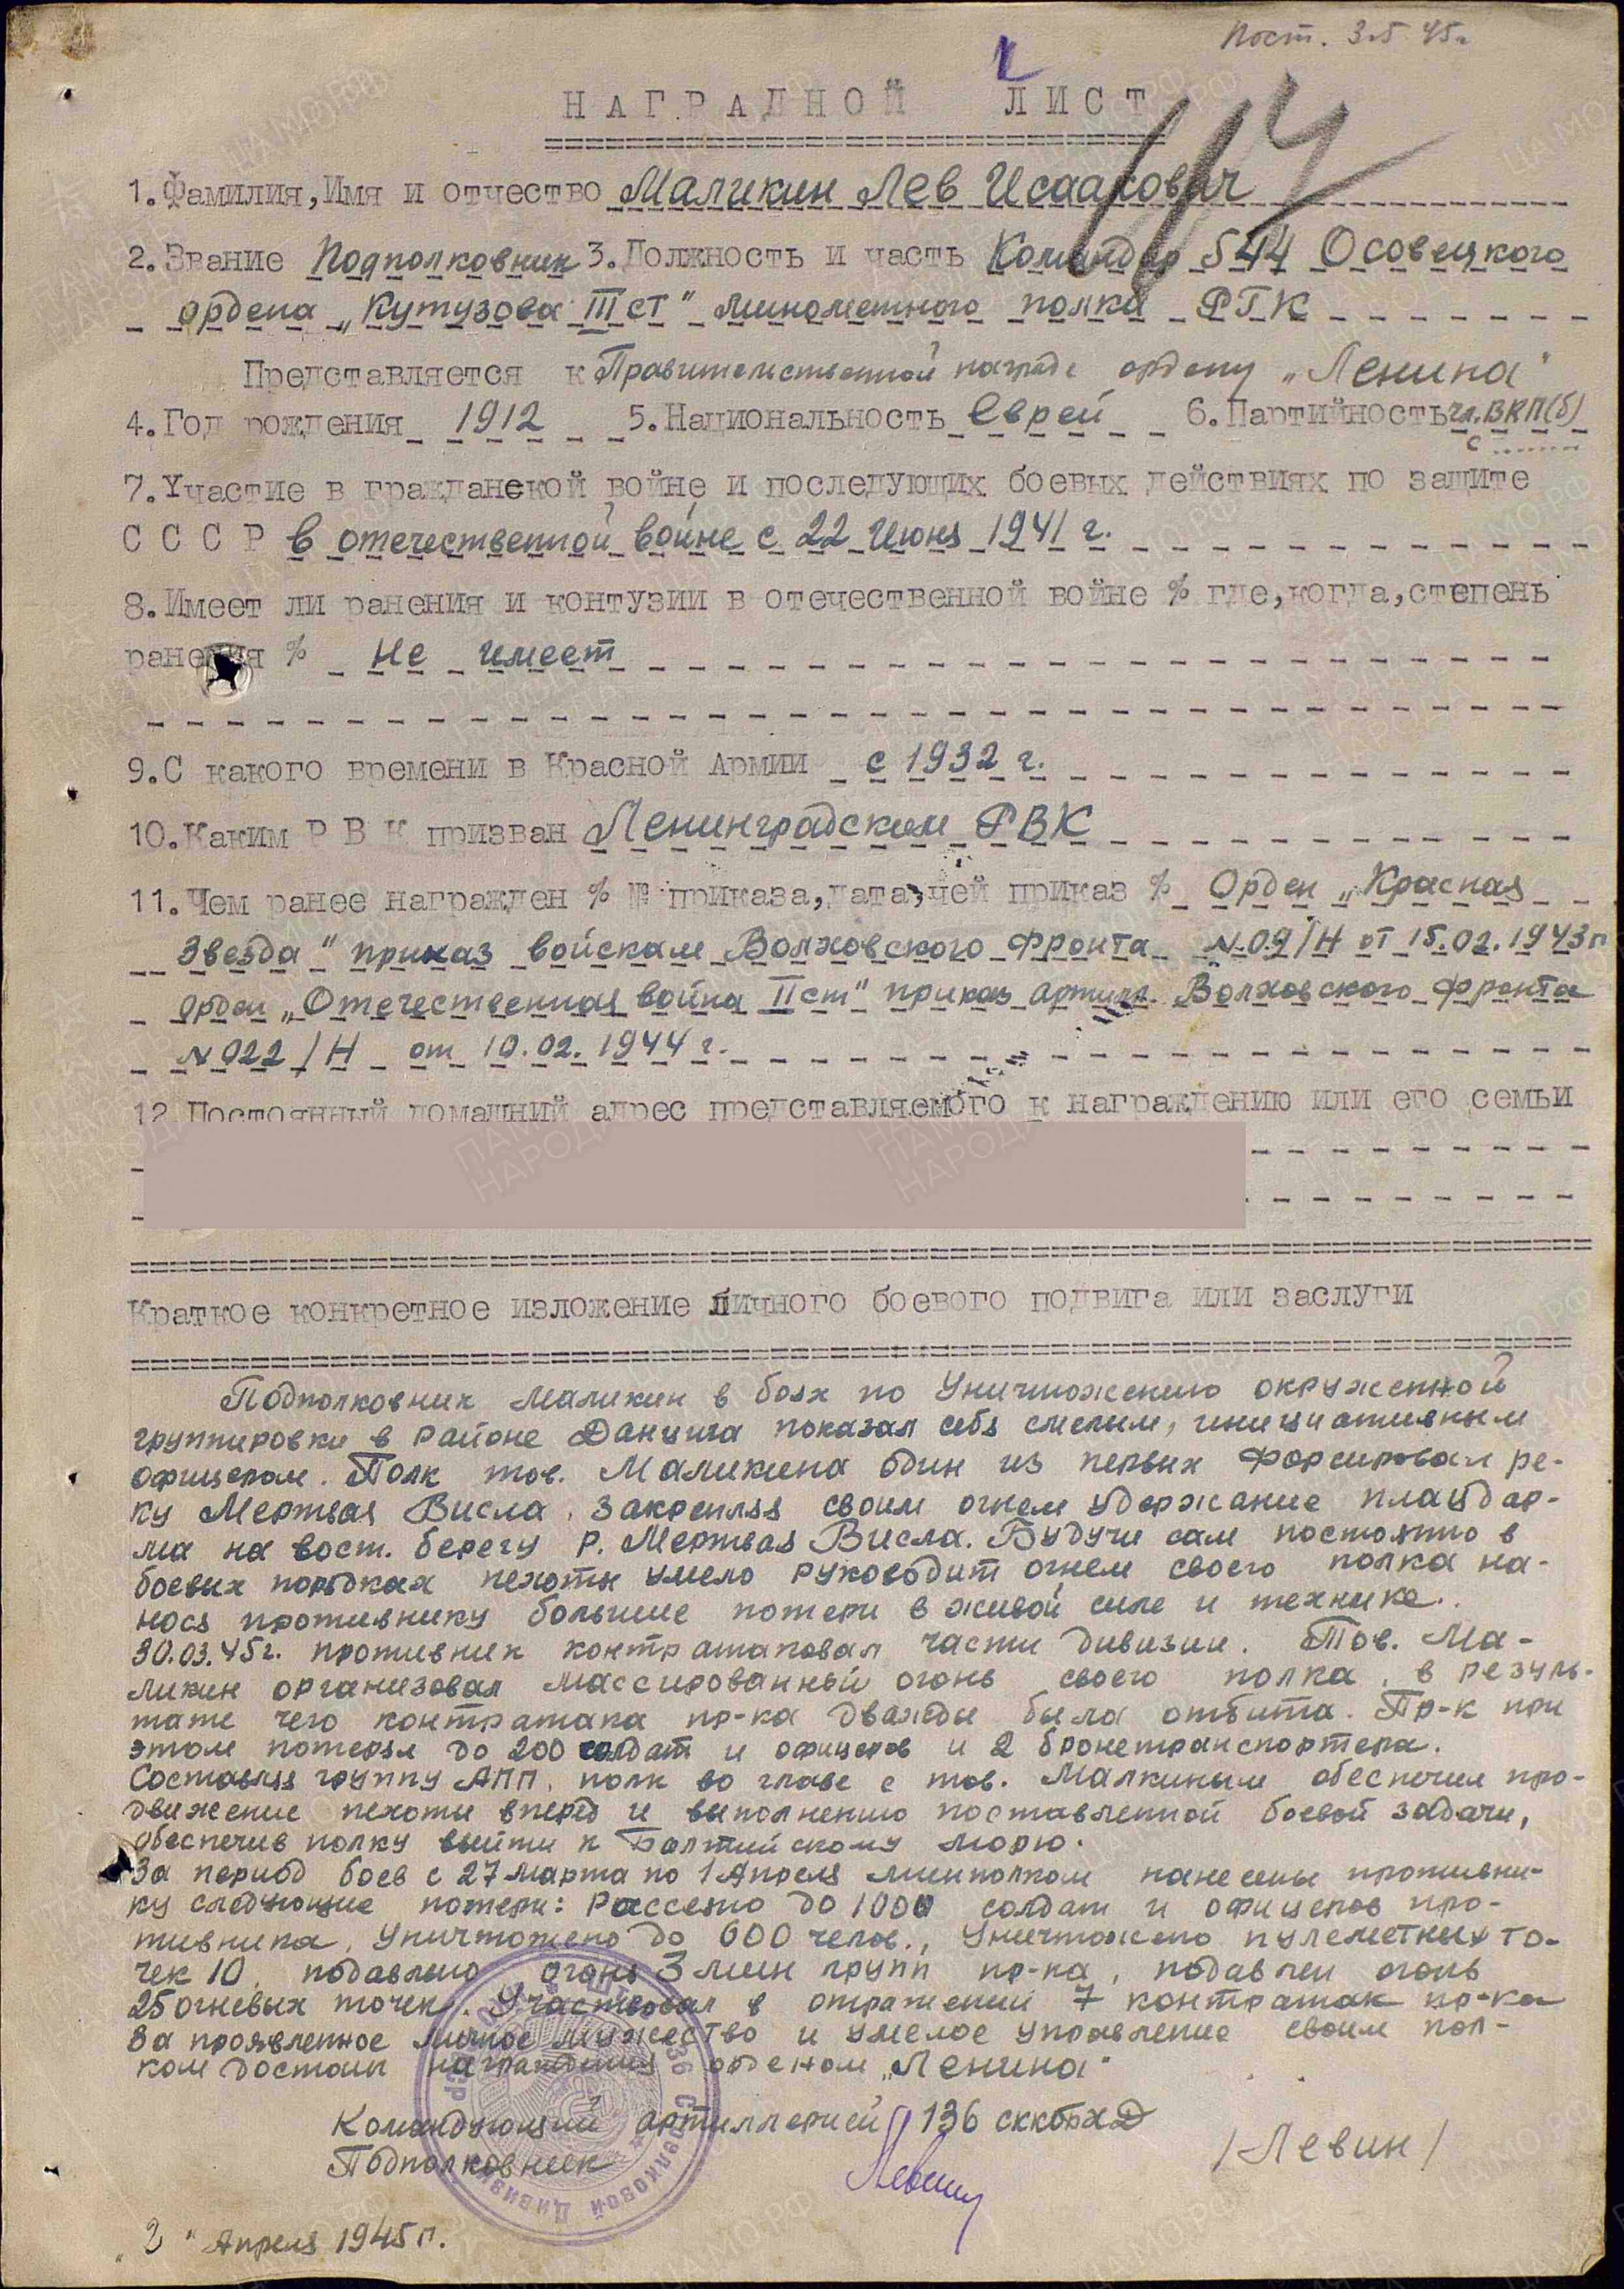 Пост. 3.5.45г
НАГРАДНОЙ ЛИСТ
1.Фамилия,Имя и отчество Маликин Лев Исаакович
2.Звание Подполковник 3.Должность и часть Командир 544 Осовецкого
ордена „Кутузова III ст" минометного полка РГК
Представляется к Правительственной награде ордену „Ленина"
4.Год рождения 1912 5.Национальность Еврей 6.Партийность чл.ВКП(б)
с
7.Участие в гражданской войне и последующих боевых действиях по защите
С С С Р в отечественной войне с 22 Июня 1941 г.
8.Имеет ли ранения и контузии в отечественной войне % где,когда,степень
ранения % Не имеет
9.С какого времени в Красной Армии с 1932 г.
10.Каким Р В К призван Ленинградским РВК
11.Чем ранее награжден % № приказа,дата,чей приказ % Орден „Красная
Звезда" приказ войскам Волховского Фронта N.09/Н от 15.02.1943г
орден „Отечественная война II ст" приказ артилл. Волховского фронта
N 022/Н от 10.02.1944 г.
12.Постоянный домашний адрес представляемого к награждению или его семьи
Краткое конкретное изложение личного боевого подвига или заслуги
Подполковник Маликин в боях по Уничтожению окруженной
группировки в районе Данцига показал себя смелым, инициативным
офицером. Полк тов. Маликина один из первых форсировал ре-
ку Мертвая Висла, закрепляя своим огнем удержание плацдар-
ма на вост. берегу р. Мертвая Висла. Будучи сам постоянно в
боевых порядках пехоты умело руководит огнем своего полка на-
нося противнику большие потери в живой силе и технике.
30.03.45г. противник контратаковал части дивизии. Тов. Ма-
ликин организовал массированный огонь своего полка, в резуль-
тате чего контратака пр-ка дважды была отбита. Пр-к при
этом потерял до 200 солдат и офицеров и 2 бронетранспортера.
Составляя группу АПП, полк во главе с тов. Малкиным обеспечил про-
движение пехоты вперед и выполнению поставленной боевой задачи,
обеспечив полку выйти к Балтийскому морю.
За период боев с 27 марта по 1 Апреля минполком нанесены противни-
ку следующие потери: Рассеяно до 1000 солдат и офицеров про-
тивника, Уничтожено до 600 челов., Уничтожено пулеметных то-
чек 10, подавлено огонь 3 мин групп пр-ка, подавлен огонь
25 огневых точек. Участвовал в отражении 7 контратак пр-ка
За проявленное личное мужество и умелое управление своим пол-
ком достоин награждения орденом „Ленина"
Командующий артиллерией 136 скКбрхД
Подполковник Левин /Левин/
„2" Апреля 1945 г.